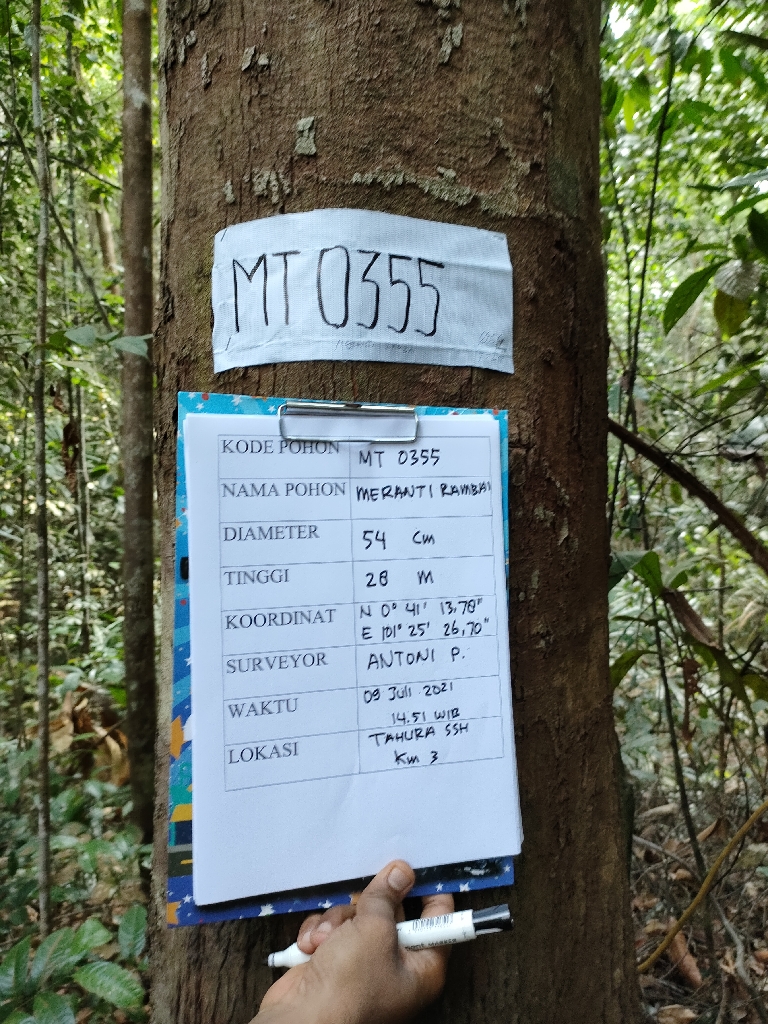 MT 0355
KODE POHON MT 0355
NAMA POHON MERANTI RAMBAI
DIAMETER 54 Cm
TINGGI 28 M
KOORDINAT N 0° 41' 13,78"
E 101° 25' 26,70"
SURVEYOR ANTONI P.
WAKTU 09 Juli 2021
14.51 WIB
LOKASI TAHURA SSH
Km 3